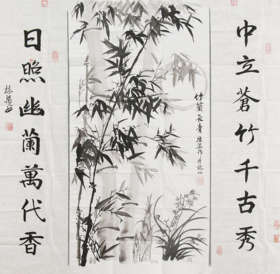 中立蒼竹千古秀
日照幽蘭萬代香
竹蘭長青